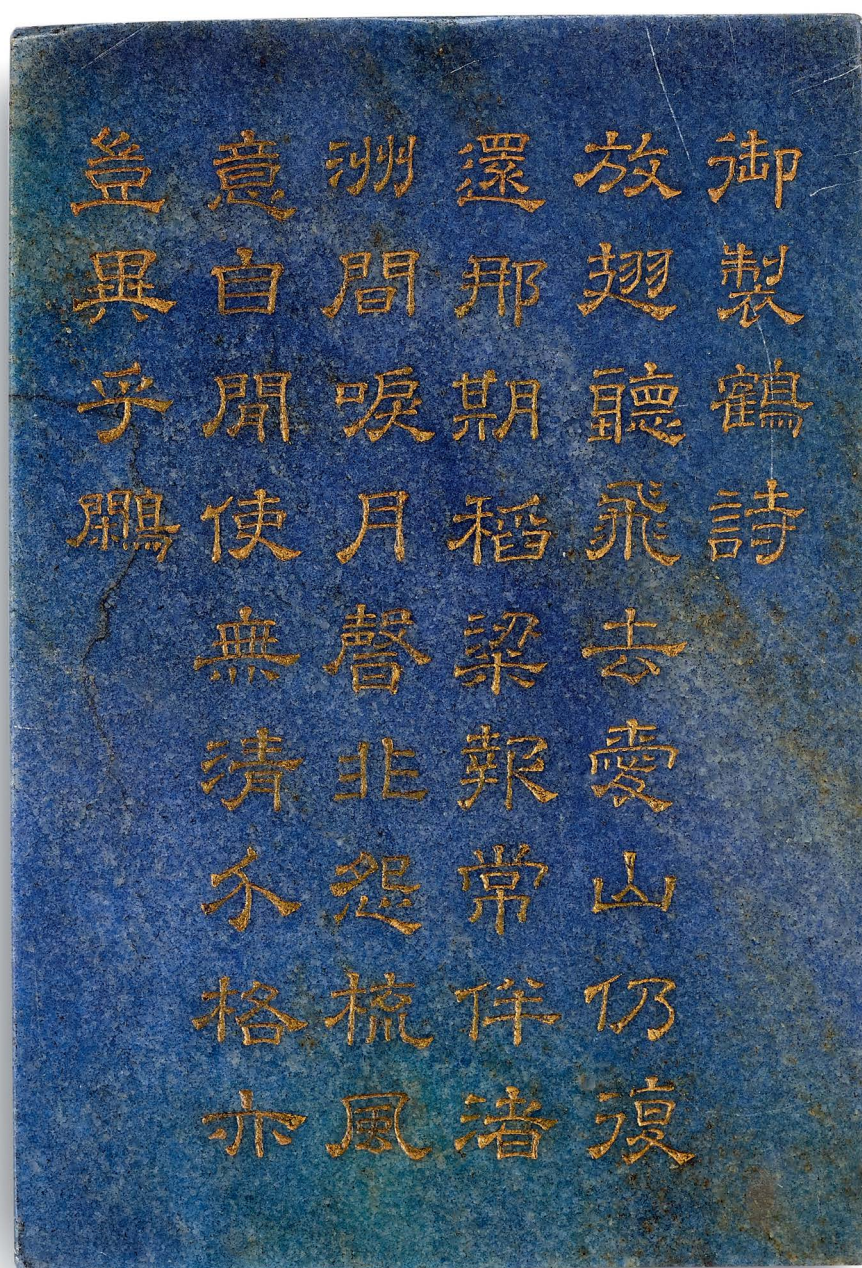 御製鶴詩
放翅聽飛去愛山仍復
還那期稻粱報常伴渚
洲間唳月聲非怨梳風
意自閒使無清介格亦
豈異乎鷳